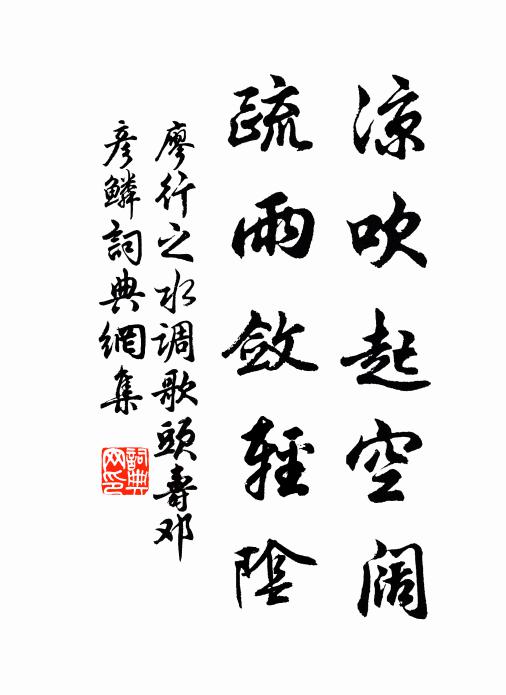 凉吹起空阔
疏雨敛輕陰
廖行之水调歌頭壽邓
彦鱗詞典網集
詞典网印